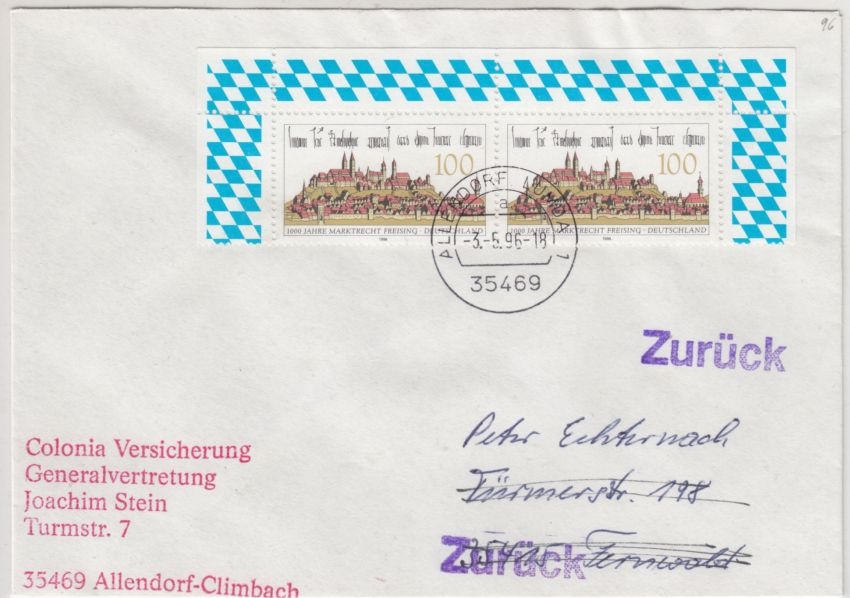 96
100
1000 JAHRE MARKTRECHT FREISING · DEUTSCHLAND
1996
100
1000 JAHRE MARKTRECHT FREISING · DEUTSCHLAND
1996
ALLENDORF, LUMDA 1
a
-3.-5.96-18
35469
Zurück
Peter Echternach
Türmerstr. 198
35415 Fernwald
Zurück
Colonia Versicherung
Generalvertretung
Joachim Stein
Turmstr. 7
35469 Allendorf-Climbach